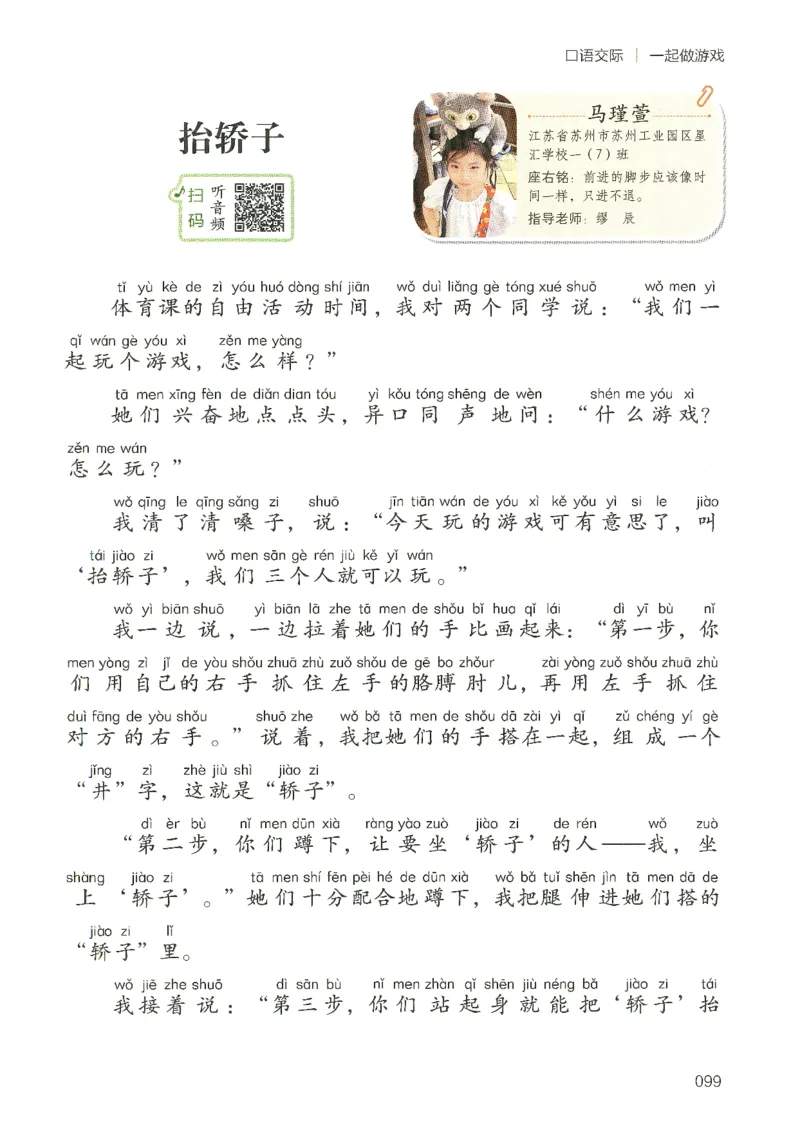 口语交际 | 一起做游戏
抬轿子
扫码
听音频
马瑾萱
江苏省苏州市苏州工业园区星
汇学校一(7)班
座右铭：前进的脚步应该像时
间一样，只进不退。
指导老师：缪 辰
tǐ yù kè de zì yóu huó dòng shí jiān wǒ duì liǎng gè tóng xué shuō wǒ men yì
体育课的自由活动时间，我对两个同学说：“我们一
qǐ wán gè yóu xì zěn me yàng
起玩个游戏，怎么样？”
tā men xīng fèn de diǎn dian tóu yì kǒu tóng shēng de wèn shén me yóu xì
她们兴奋地点点头，异口同声地问：“什么游戏？
zěn me wán
怎么玩？”
wǒ qīng le qīng sǎng zi shuō jīn tiān wán de yóu xì kě yǒu yì si le jiào
我清了清嗓子，说：“今天玩的游戏可有意思了，叫
tái jiào zi wǒ men sān gè rén jiù kě yǐ wán
‘抬轿子’，我们三个人就可以玩。”
wǒ yì biān shuō yì biān lā zhe tā men de shǒu bǐ hua qǐ lái dì yī bù nǐ
我一边说，一边拉着她们的手比画起来：“第一步，你
men yòng zì jǐ de yòu shǒu zhuā zhù zuǒ shǒu de gē bo zhǒur zài yòng zuǒ shǒu zhuā zhù
们用自己的右手抓住左手的胳膊肘儿，再用左手抓住
duì fāng de yòu shǒu shuō zhe wǒ bǎ tā men de shǒu dā zài yì qǐ zǔ chéng yí gè
对方的右手。”说着，我把她们的手搭在一起，组成一个
jǐng zì zhè jiù shì jiào zi
“井”字，这就是“轿子”。
dì èr bù nǐ men dūn xià ràng yào zuò jiào zi de rén wǒ zuò
“第二步，你们蹲下，让要坐‘轿子’的人——我，坐
shàng jiào zi tā men shí fēn pèi hé de dūn xià wǒ bǎ tuǐ shēn jìn tā men dā de
上‘轿子’。”她们十分配合地蹲下，我把腿伸进她们搭的
jiào zi lǐ
“轿子”里。
wǒ jiē zhe shuō dì sān bù nǐ men zhàn qǐ shēn jiù néng bǎ jiào zi tái
我接着说：“第三步，你们站起身就能把‘轿子’抬
099